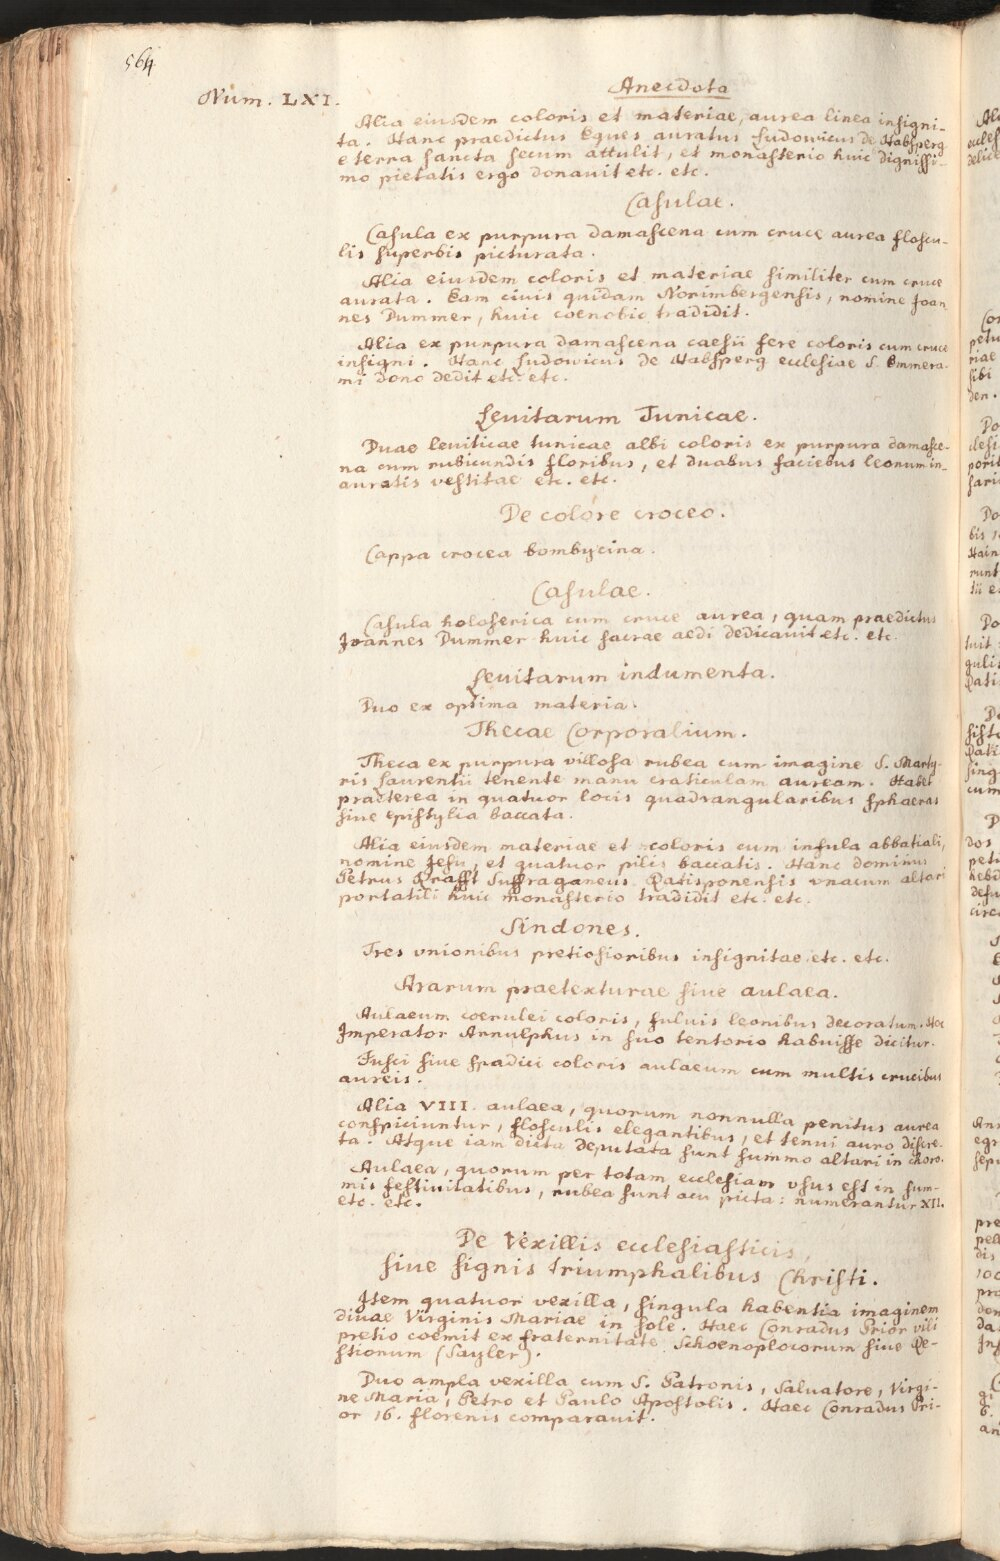 564
Num. LXI.
Anecdota
Alia eiusdem coloris et materiae, aurea linea insigni-
ta. Hanc praedictus Eques auratus Ludowicus de Habsperg
e terra sancta secum attulit, et monasterio huic dignissi-
mo pietatis ergo donauit etc. etc.
Casulae.
Casula ex purpura damascena cum cruce aurea floscu-
lis superbis picturata.
Alia eiusdem coloris et materiae similiter cum cruce
aurata. Eam ciuis quidam Norimbergensis, nomine Joan
nes Dummer, huic coenobio tradidit.
Alia ex purpura damascena caesii fere coloris cum cruce
insigni. Hanc Ludowicus de Habsperg ecclesiae S. Emmera-
mi dono dedit etc. etc.
Leuitarum Tunicae.
Duae leuiticae tunicae albi coloris ex purpura damasce-
na cum rubicundis floribus, et duabus faciebus leonum in-
auratis vestitae etc. etc.
De colore croceo.
Cappa crocea bombycina.
Casulae.
Casula holoserica cum cruce aurea, quam praedictus
Joannes Dummer huic sacrae aedi dedicauit etc. etc.
Leuitarum indumenta.
Duo ex optima materia.
Thecae Corporalium.
Theca ex purpura villosa rubea cum imagine S. Marty-
ris Laurentii tenente manu craticulam auream. Habet
praeterea in quatuor locis quadrangularibus sphaeras
siue epistylia baccata.
Alia eiusdem materiae et coloris cum infula abbatiali,
nomine Jesu, et quatuor pilis baccatis. Hanc dominus
Petrus Krafft Suffraganeus Ratisponensis vnacum altari
portatili huic monasterio tradidit etc. etc.
Sindones.
Tres vnionibus pretiosioribus insignitae etc. etc.
Ararum praetexturae siue aulaea.
Aulaeum coerulei coloris, fuluis leonibus decoratum. Hoc
Imperator Arnulphus in suo tentorio habuisse dicitur.
Fusci siue spadici coloris aulaeum cum multis crucibus
aureis.
Alia VIII. aulaea, quorum nonnulla penitus aurea
conspiciuntur, flosculis elegantibus, et tenui auro discre-
ta. Atque iam dicta deputata sunt summo altari in choro.
Aulaea, quorum per totam ecclesiam vsus est in sum-
mis festiuitatibus, rubea sunt acu picta: numerantur XII.
etc. etc.
De Vexillis ecclesiasticis,
siue signis triumphalibus Christi.
Item quatuor vexilla, singula habentia imaginem
diuae Virginis Mariae in sole. Haec Conradus Prior vili
pretio coemit ex fraternitate Schoenoplocorum siue Re-
stionum (Sayler).
Duo ampla vexilla cum S. Patronis, Saluatore, Virgi-
ne Maria, Petro et Paulo Apostolis. Haec Conradus Pri-
or 16. florenis comparauit.